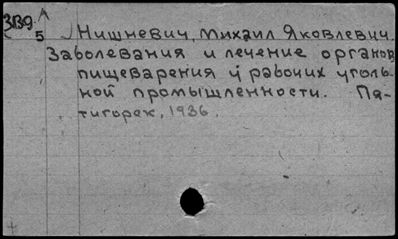 ЗВ9 А
5
Нишневич, Михаил Яковлевич.
Заболевания и лечение органов
пищеварения у рабочих уголь-
ной промышленности. Пя-
тигорск, 1936.